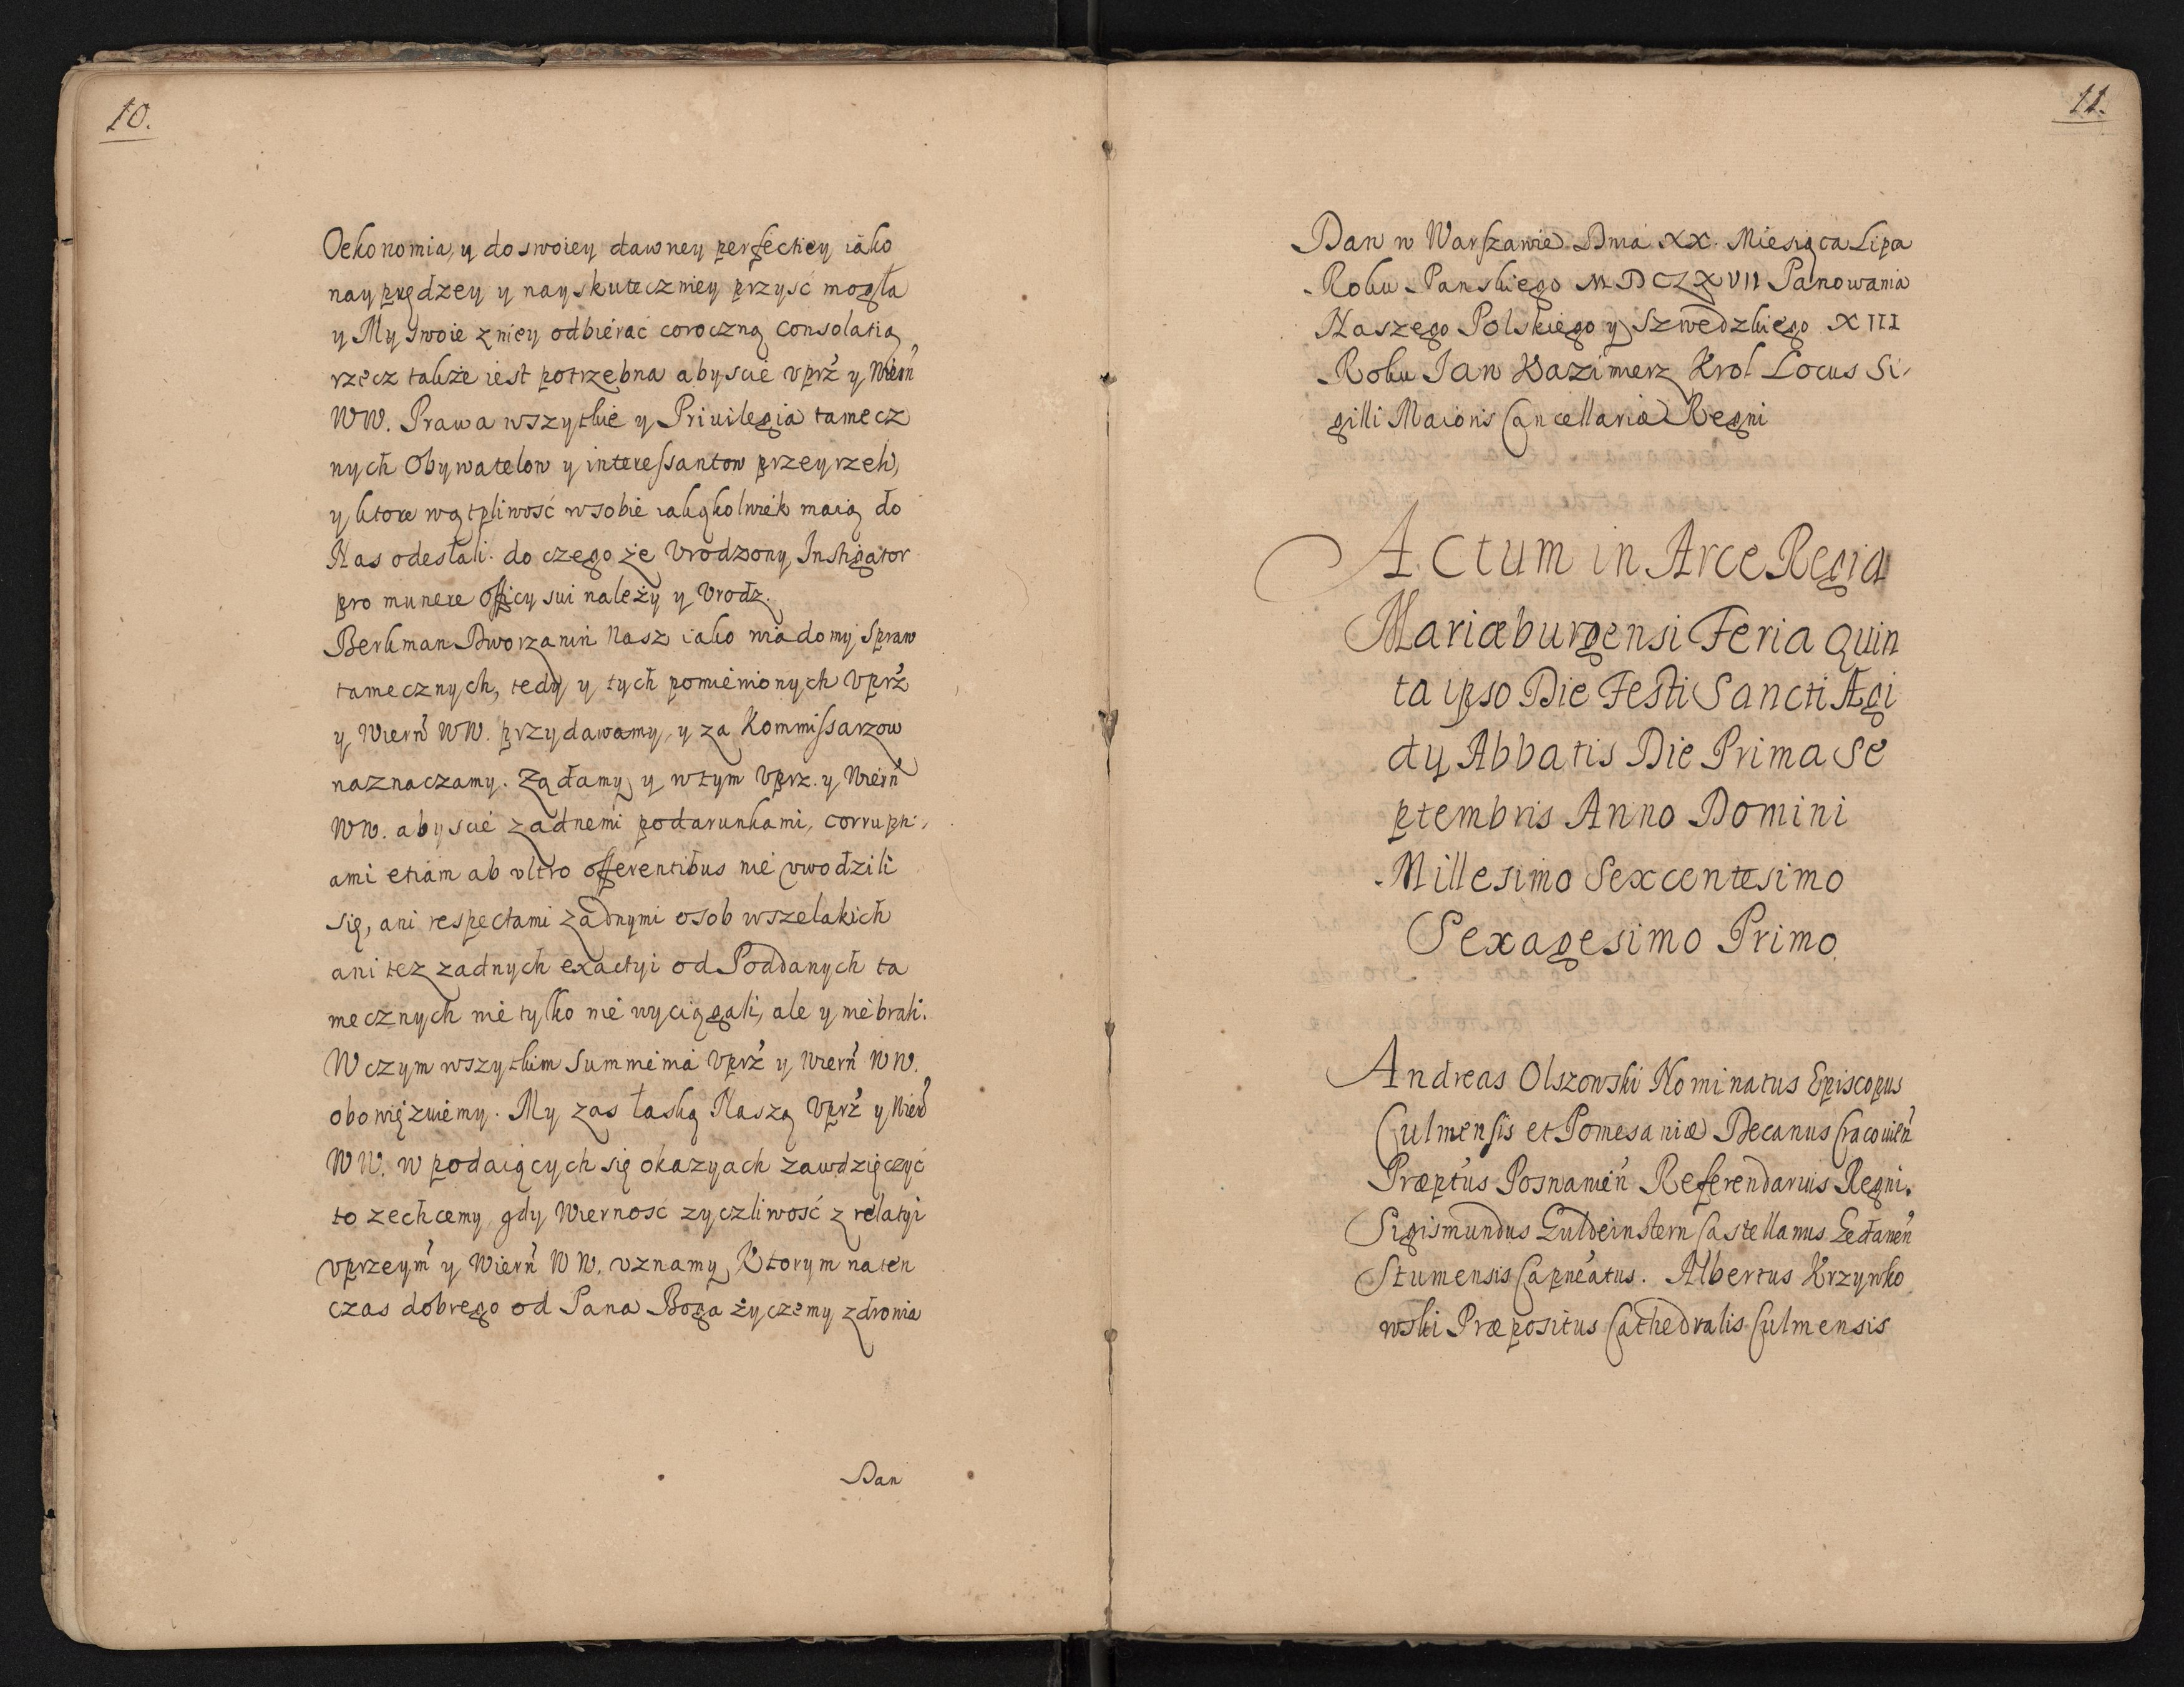 10.
Oekonomia, y do swoiey dawney perfectiey iako
nayprędzey y nayskuteczniey przysć mogła
y My swoie z niey odbierać coroczną consolatią
rzecz także iest potrzebna abyscie vprź y Wierń
WW. Prawa wszytkie y Priuilegia tamecz
nych Obywatelow y interessantow przeyrzeli,
y ktore wątpliwość w sobie iakąkolwiek maią do
Nas odesłali. do czego że Vrodzony Instigator
pro munere officy sui należy y Vrodz.
Berkman Dworzanin Nasz iako wiadomy spraw
tamecznych, tedy y tych pomienionych Vprź
y Wierń WW. przydawamy, y za Kommissarzow
naznaczamy. Ządamy y w tym Vprz. y Wierń
WW. abyscie zadnemi podarunkami, corrupti,
ami etiam ab vltro offerentibus nie vwodzili
się, ani respectami zadnymi osob wszelakich
ani tez zadnych exactyi od Poddanych ta
mecznych nie tylko nie wyciągali, ale y nie brali.
W czym wszytkim Summienia Vprź y Wierń WW.
obowięzuiemy. My zas łaską Naszą Vprź y Wierń
WW. w podaiących się okazyach zawdzięczyć
to zechcemy, gdy Wiernosć zyczliwość z relatyi
vprzeym y Wierń WW. vznamy, Ktorym na ten
czas dobrego od Pana Boga życzemy zdrowia
Dan
11.
Dan w Warszawie Dnia XX. Miesiąca Lipa
Roku Panskiego MDCLXVII Panowania
Naszego Polskiego y Szwedzkiego XIII
Roku Jan Kazimierz Krol Locus Si,
gilli Maioris Cancellariæ Regni
Actum in Arce Regia
Mariæburgensi Feria Quin
ta ipso Die Festi Sancti Ægi
dy Abbatis Die Prima Se
ptembris Anno Domini
Millesimo Sexcentesimo
Sexagesimo Primo.
Andreas Olszowski Nominatus Episcopus
Culmensis et Pomesaniæ Decanus Cracouień
Præptus Posnanień Referendarius Regni.
Sigismundus Guldeinstern Castellanus Gedaneń
Stumensis Capneatus. Albertus Krzywko
wski Præpositus Cathedralis Culmensis